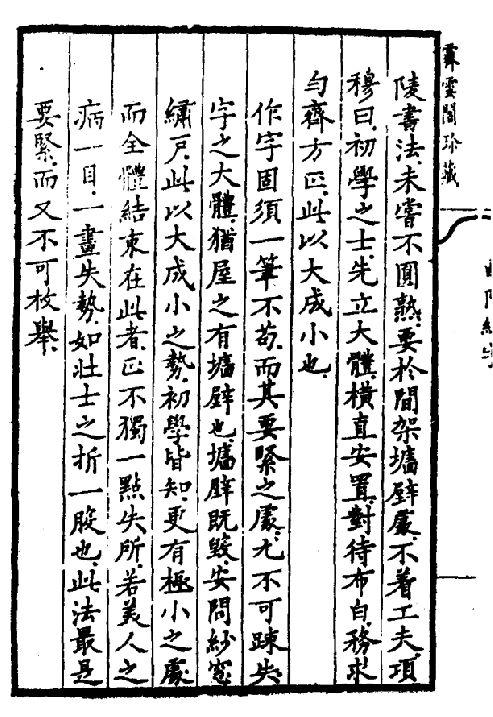 霏雲閣珍藏
陵書法，未嘗不圓熟，要於間架墻壁處，不着工夫，項
穆曰，初學之士，先立大體，橫直安置，對待布白，務求
勻齊方正，此以大成小也，
作字固須一筆不苟，而其要緊之處，尤不可踈失，
字之大體，猶屋之有墻壁也，墻壁既毀，安問紗窓
繡戶，此以大成小之勢，初學皆知，更有極小之處
而全體結束在此者，正不獨一點失所，若美人之
病一目，一畫失勢，如壯士之折一股也，此法最是
要緊，而又不可枚舉，